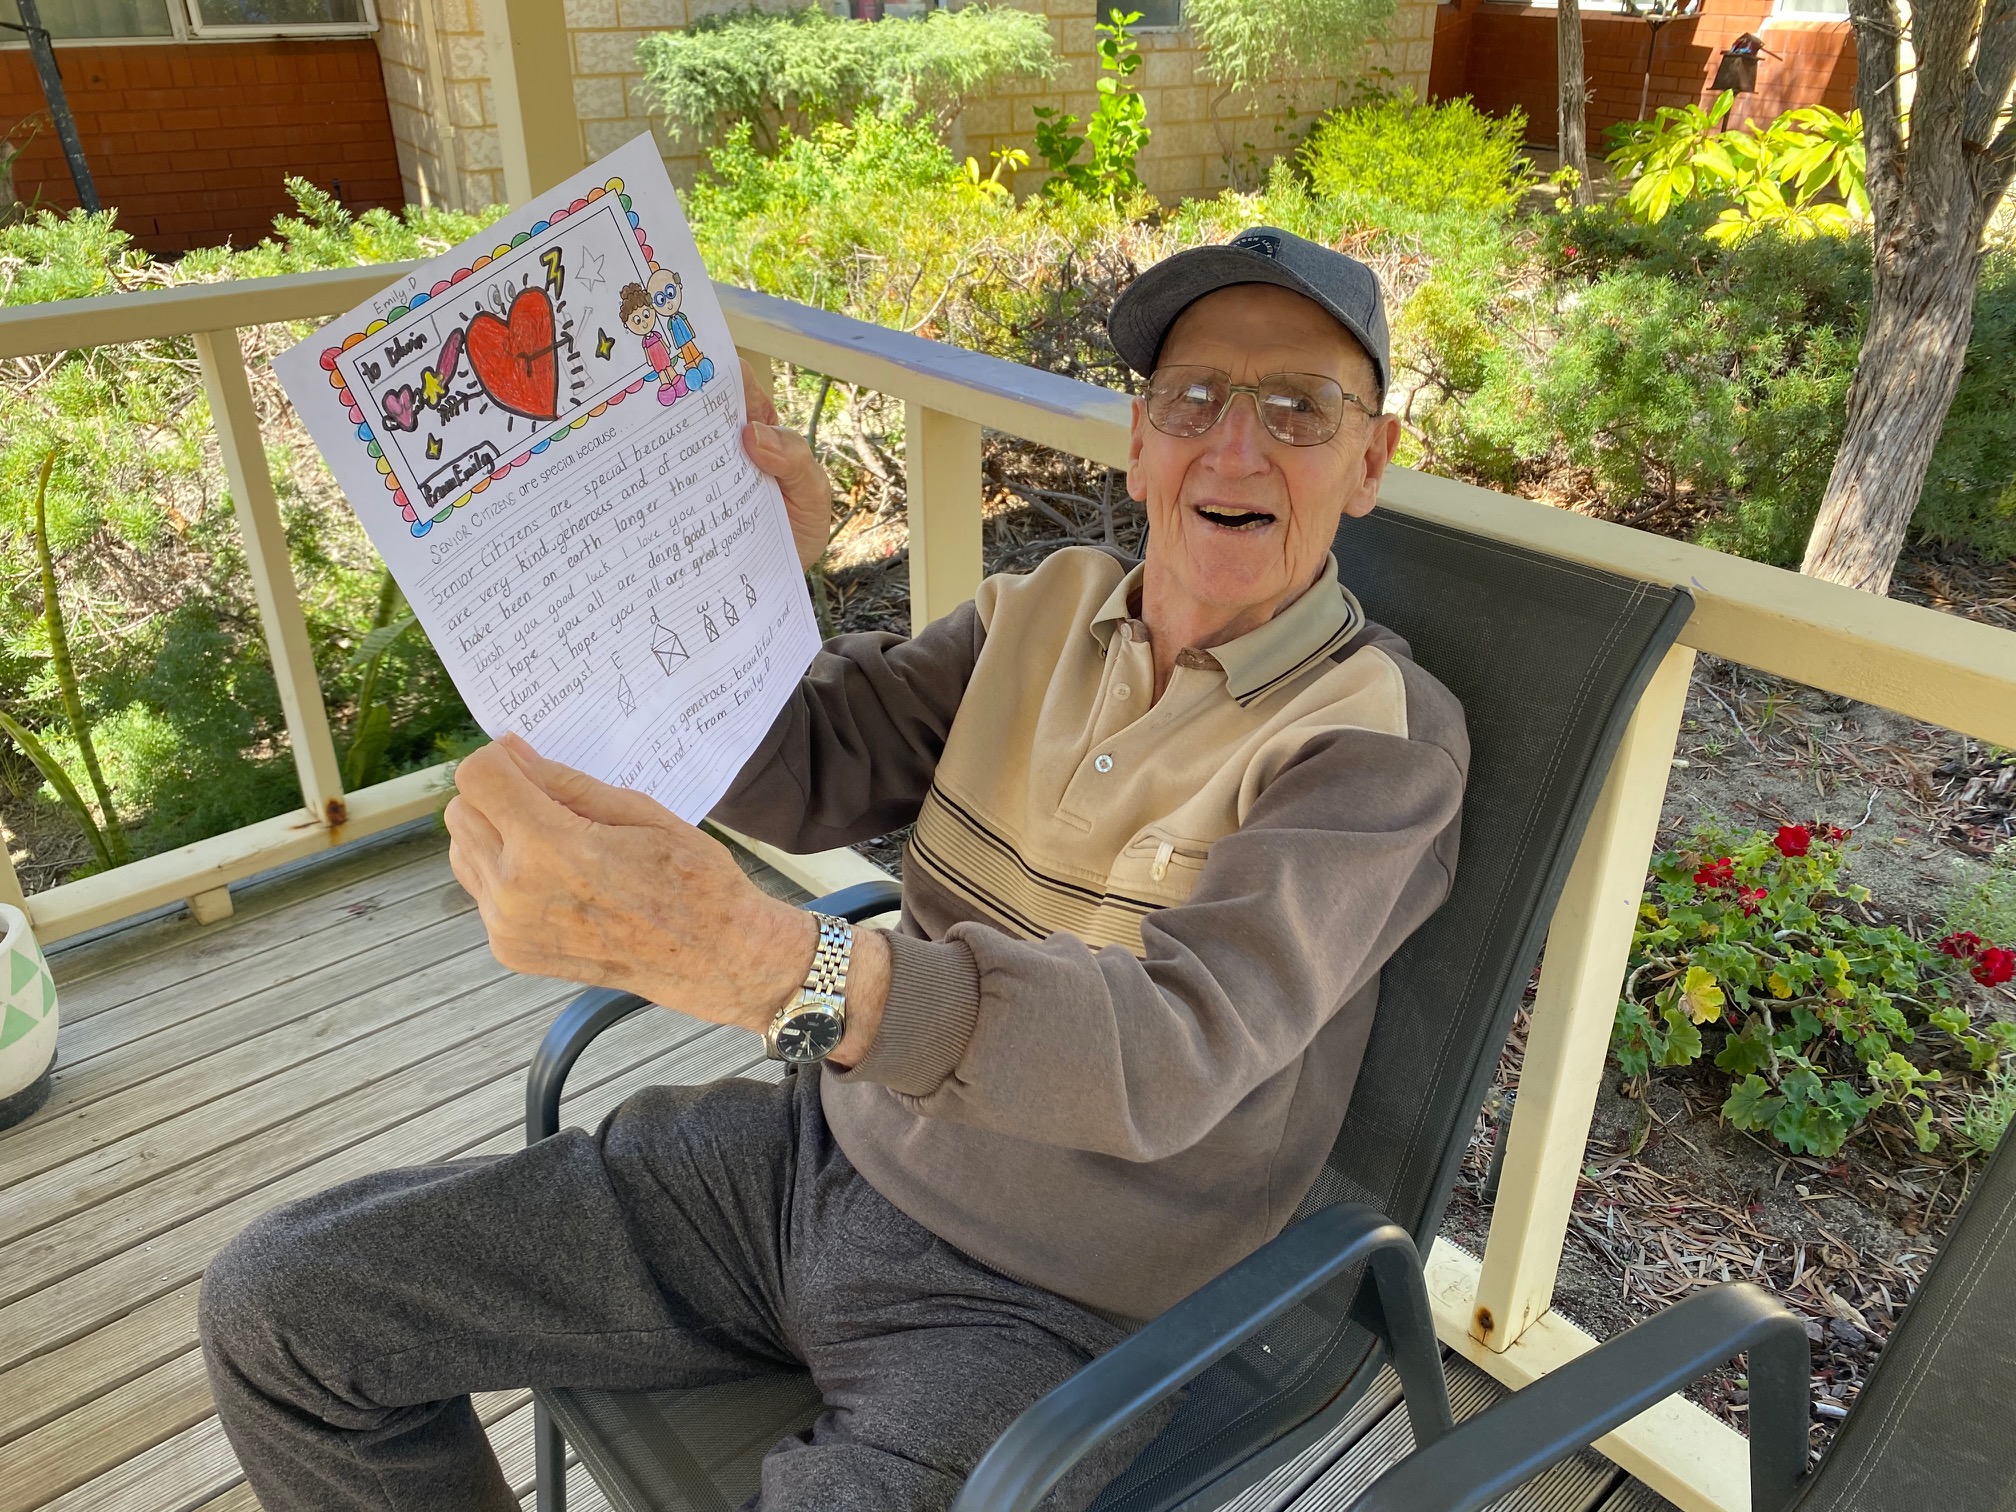 Emily.D
to Edwin
From Emily
SENIOR CITIZENS are special because...
Senior Citizens are special because they
are very kind, generous and of coarse they
have been on earth longer than us! I
Wish you good luck I love you all and
I hope you all are doing good. do remember
Edwin I hope you all are great goodbye
Beathangs!
E d w i n
Edwin is a generous, beautiful and
kind. from Emily.D